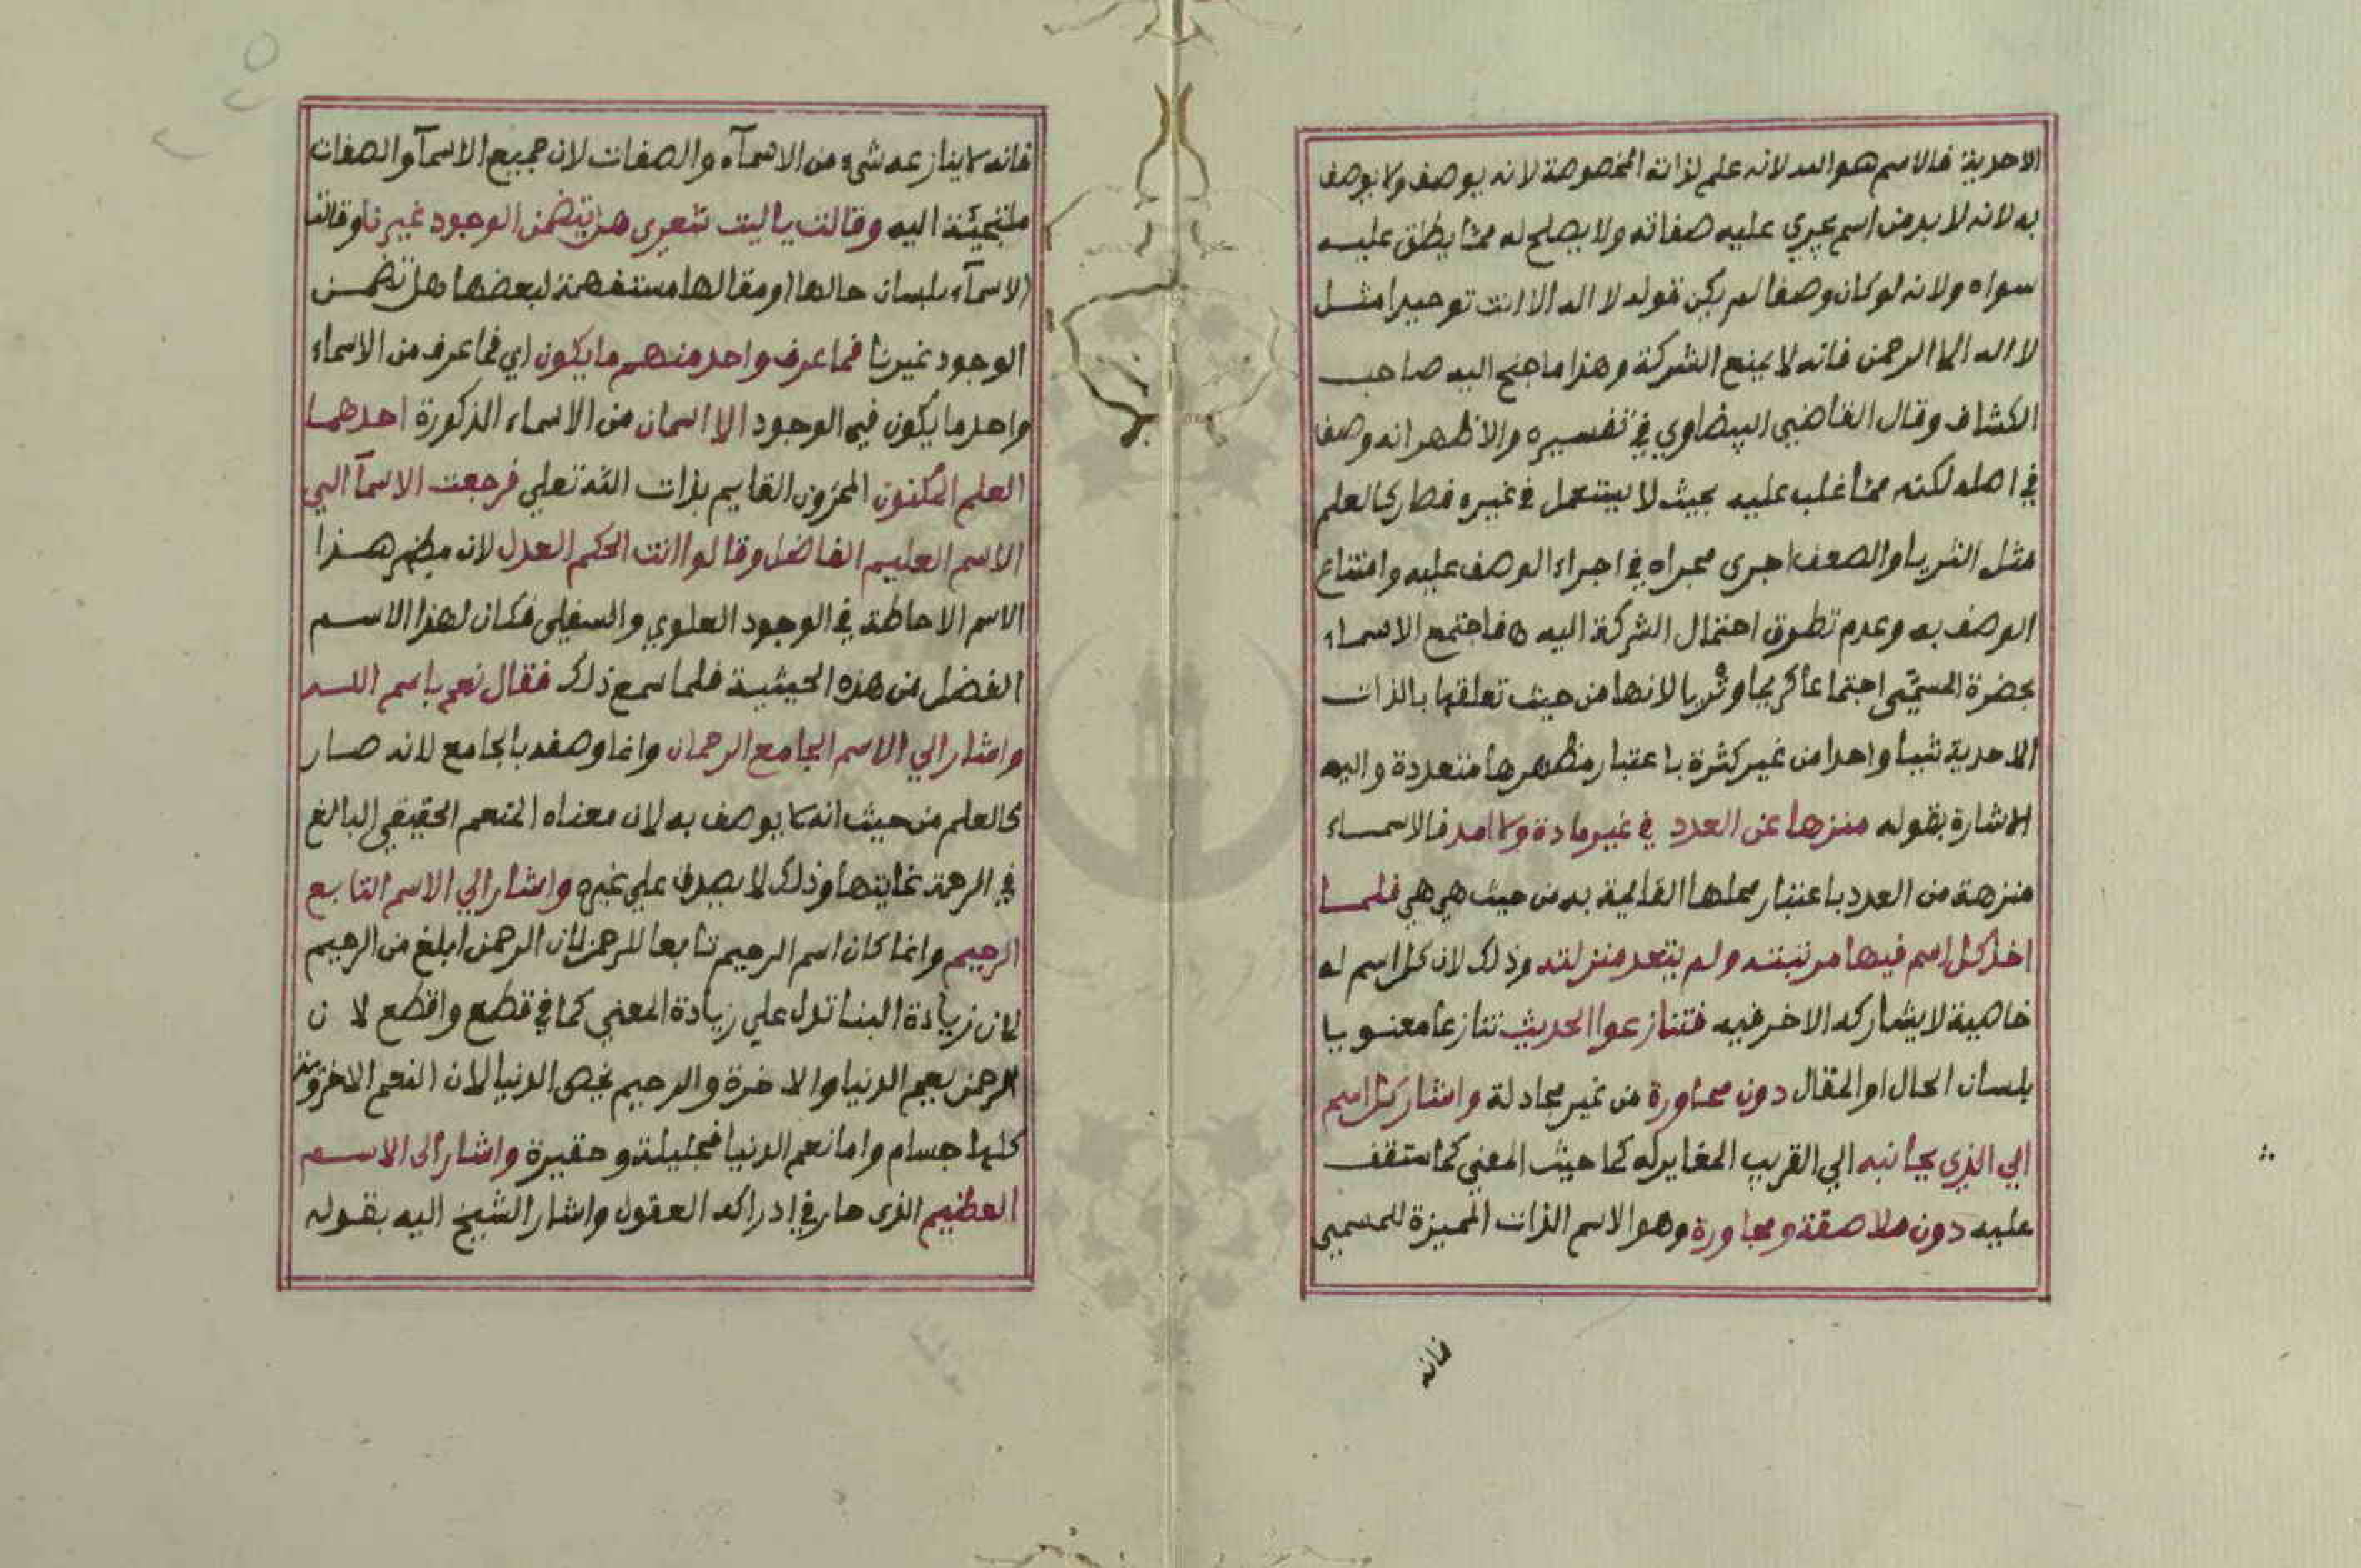 الاحدية فالاسم هو الله لانه علم لذاته المخصوصة لانه يوصف ولا يوصف
به لانه لا بد من اسم يجري عليه صفاته ولا يصلح له مما يطلق عليه
سواه ولانه لو كان وصفا لم يكن قوله لا اله الا انت توحيدا مثل
لا اله الا الرحمن فانه لا يمنع الشركة وهذا ما جنح اليه صاحب
الكشاف وقال القاضي البيضاوي في تفسيره والاظهر انه وصف
في اصله لكنه مما غلب عليه بحيث لا يستعمل في غيره فصار كالعلم
مثل الثريا والصعق اجرى مجراه في اجراء الوصف عليه وامتناع
الوصف به وعدم تطرق احتمال الشركة اليه فاجتمع الاسماء
بحضرة المسمّى اجتماعا كريما وتريا لانها من حيث تعلقها بالذات
الاحدية شيا واحدا من غير كثرة باعتبار مظهرها متعددة واليه
الاشارة بقوله منزها عن العدد في غير مادة ولا امد فالاسماء
منزهة من العدد باعتبار محلها القايمة به من حيث هي هي فلما
اخذ كل اسم فيها مرتبته ولم يتعد منزلته وذلك لان كل اسم له
خاصية لا يشاركه الاخر فيه فتنازعوا الحديث تنازعا معنويا
بلسان الحال او المقال دون محاورة من غير مجادلة واشار كل اسم
الي الذي بجانبه الي القريب المغاير له كما حيث المعني كما ستقف
عليه دون ملاصقة ومجاورة وهو الاسم الذات المميزة للمسمي
فانه
فانه لا ينازعه شيء من الاسمآء والصفات لان جميع الاسمآ والصفات
ملتجئة اليه وقالت يا ليت شعري هل يتضمن الوجود غيرنا وقالت
الاسمآء بلسان حالها او مقالها مستفهمة لبعضها هل تضمن
الوجود غيرنا فما عرف واحد منهم ما يكون اي فما عرف من الاسماء
واحد ما يكون فيه الوجود الا اسمان من الاسماء المذكورة احدهما
العلم المكنون المخزون القايم بذات الله تعلي فرجعت الاسمآ الي
الاسم العليم الفاضل وقالوا انت الحكم العدل لان مظهر هذا
الاسم الاحاطة في الوجود العلوي والسفلي فكان لهذا الاسم
الفضل من هذه الحيثية فلما سمع ذلك فقال نعم باسم الله
واشار الي الاسم الجامع الرحمان وانما وصفه بالجامع لانه صار
كالعلم من حيث انه لا يوصف به لان معناه المنعم الحقيقي البالغ
في الرحمة غايتها وذلك لا يصدق علي غيره واشار الي الاسم التابع
الرحيم وانما كان اسم الرحيم تابعا للرحمن لان الرحمن ابلغ من الرحيم
لان زيادة البنا تدل علي زيادة المعني كما في قطع واقطع لان
الرحمن يعم الدنيا والاخرة والرحيم يخص الدنيا لان النعم الاخروية
كلها جسام واما نعم الدنيا فجليلة وحقيرة واشار الى الاسم
العظيم الذي حار في ادراكه العقول واشار الشيخ اليه بقوله